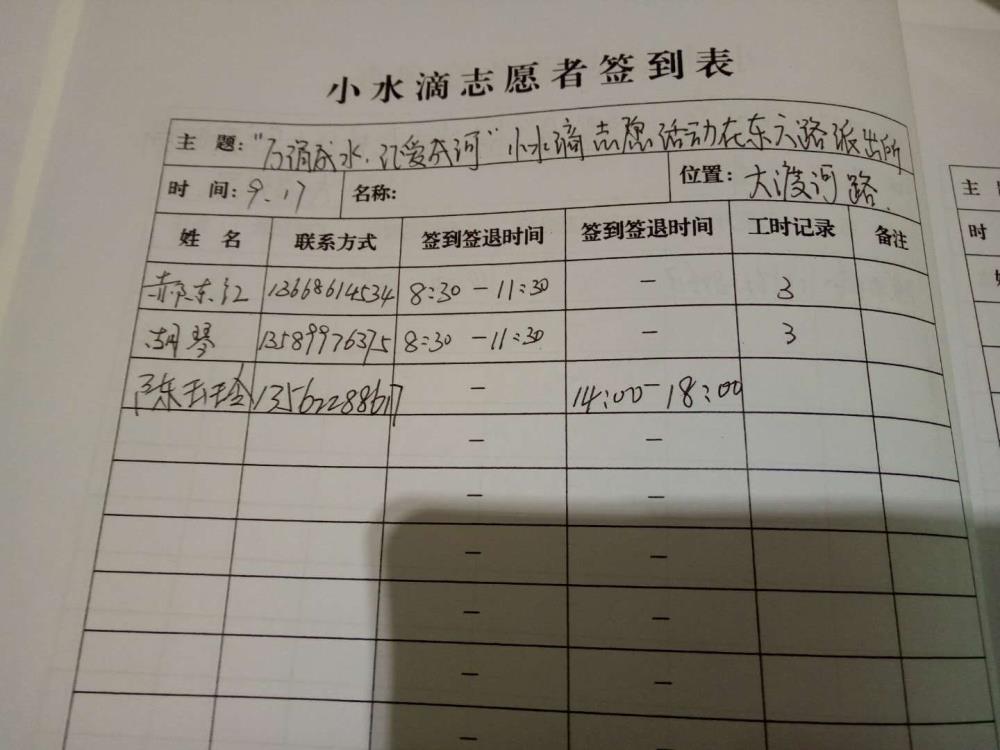 小水滴志愿者签到表
主 题:"万涓成水,汇爱成河"小水滴志愿活动在东六路派出所
时 间:9.17 名称: 位置:大渡河路.
姓 名 联系方式 签到签退时间 签到签退时间 工时记录 备注
郝东江 13668614534 8:30-11:30 - 3
胡琴 13589976375 8:30-11:30 - 3
陈玉玲 13562288617 - 14:00-18:00
- -
- -
- -
- -
- -
-
主
时